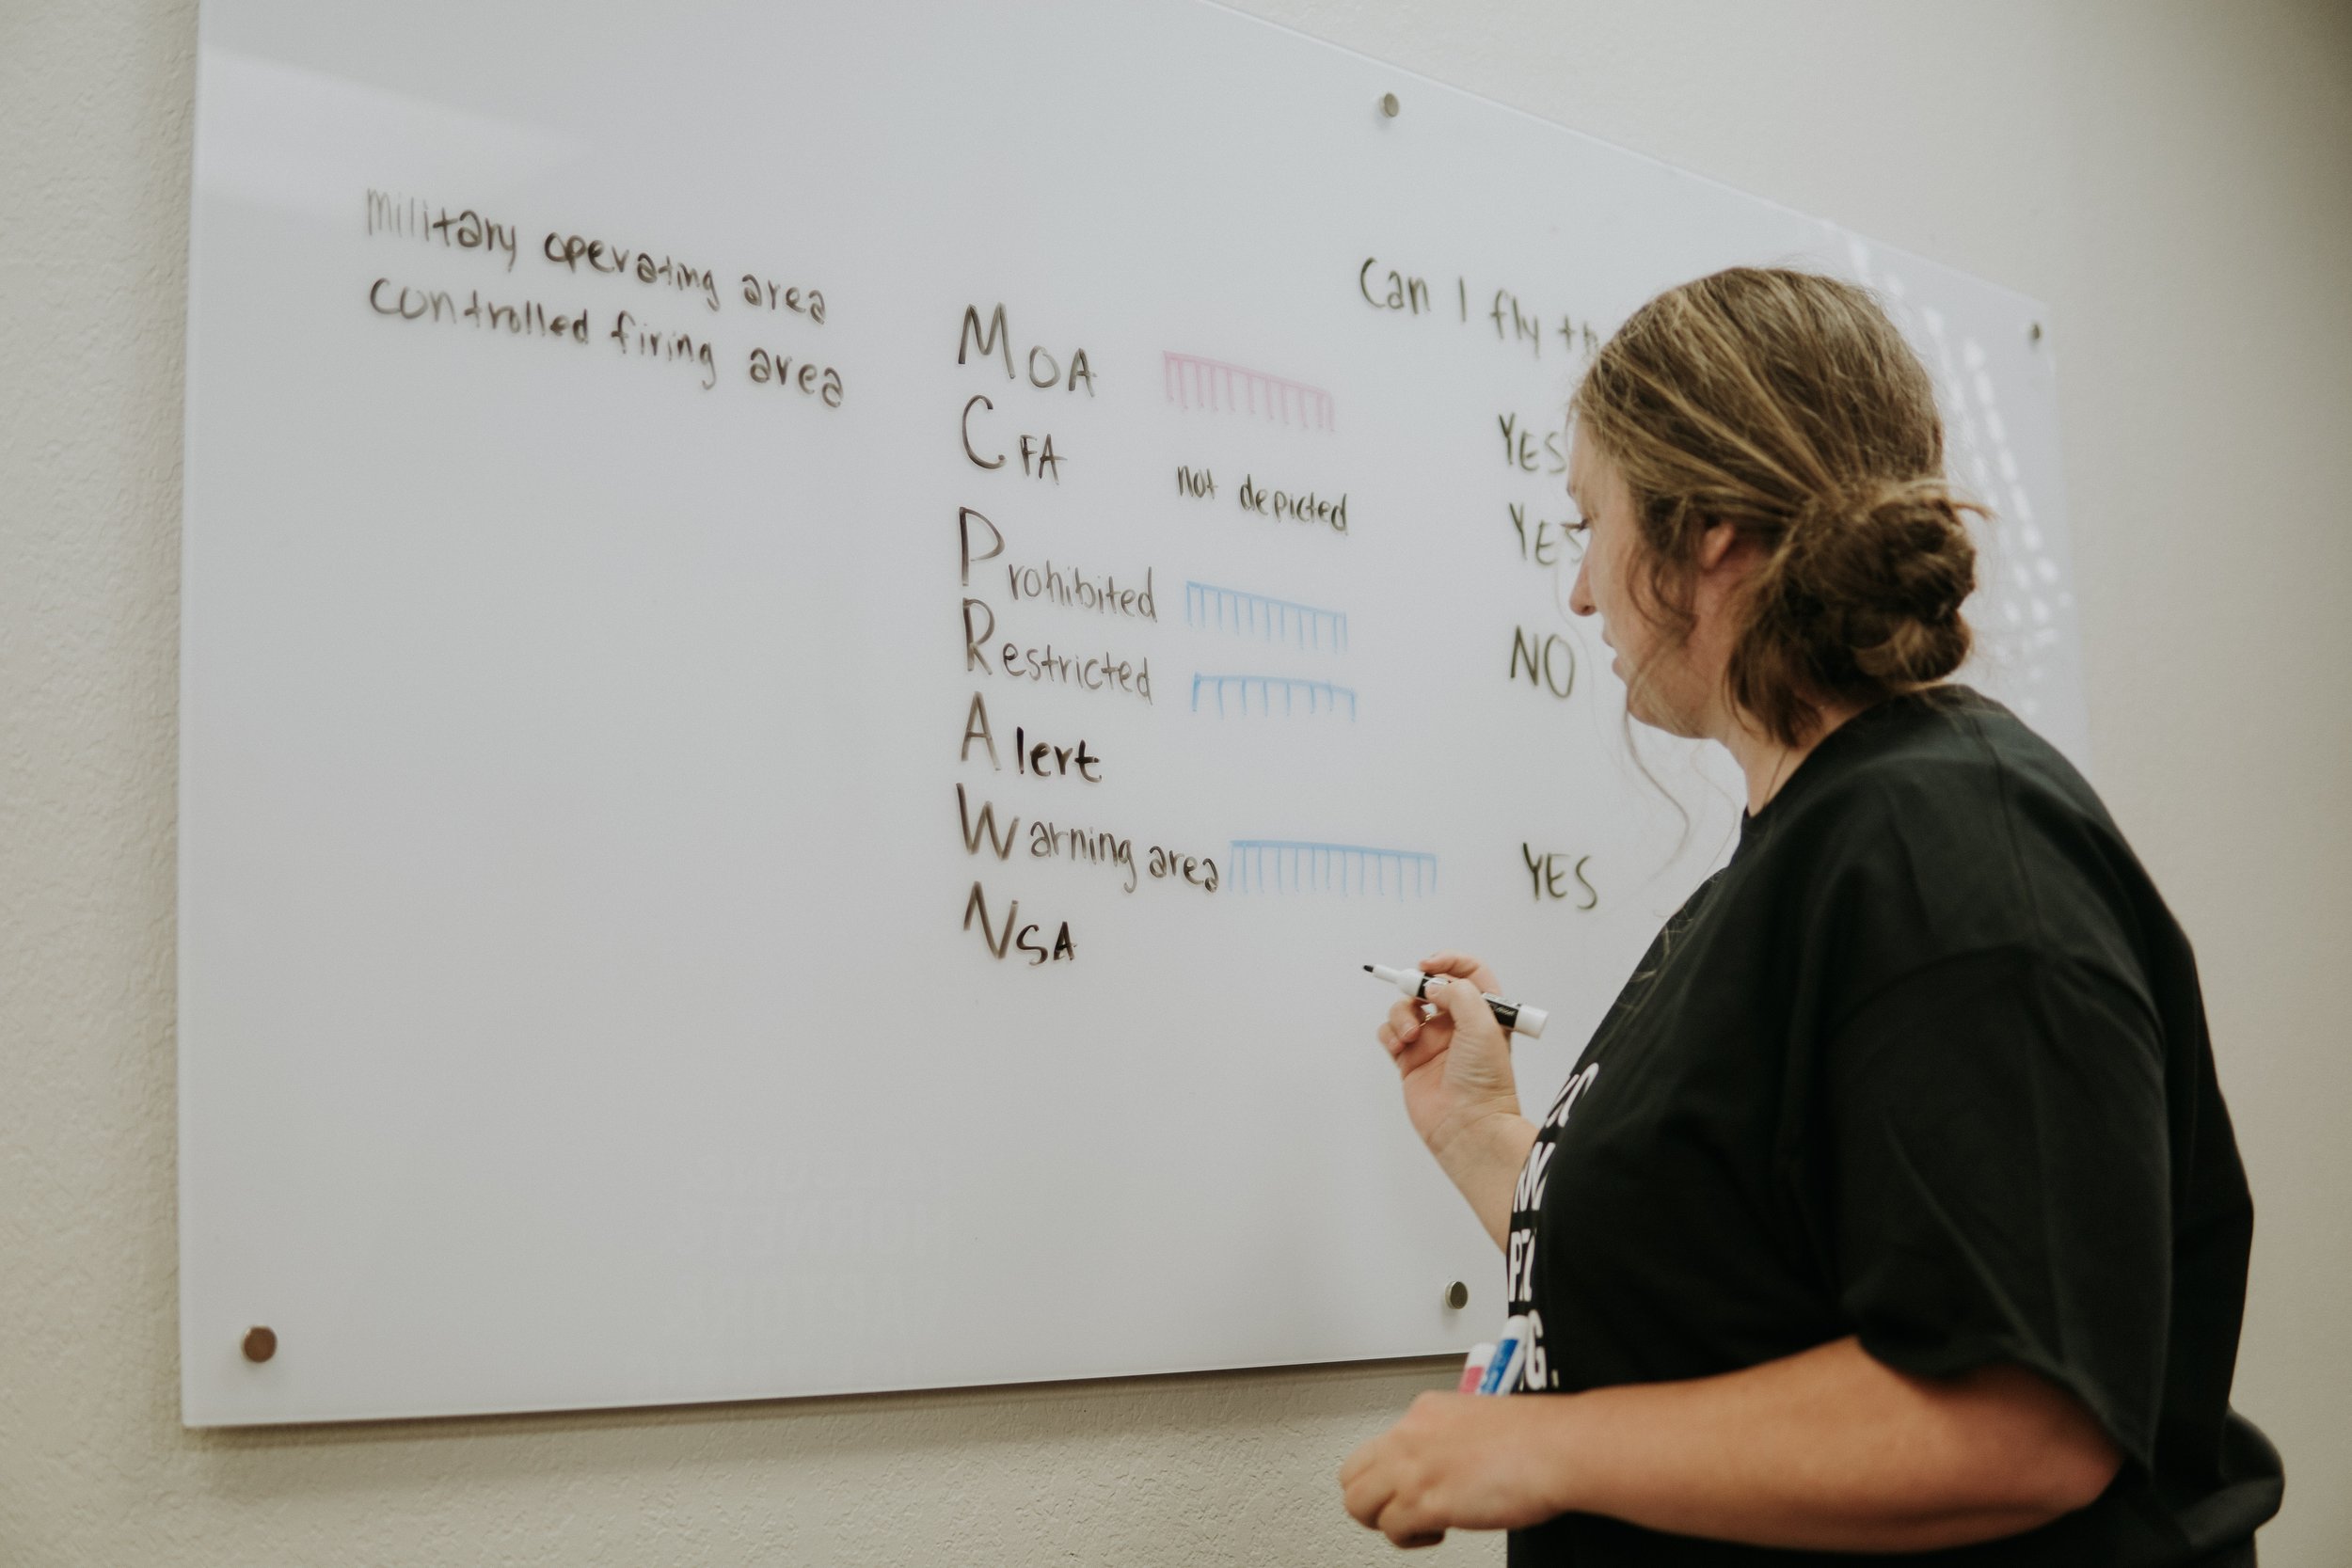 military operating area
controlled firing area
Can I fly
MOA YES
CFA not depicted YES
Prohibited NO
Restricted
Alert
Warning area YES
NSA